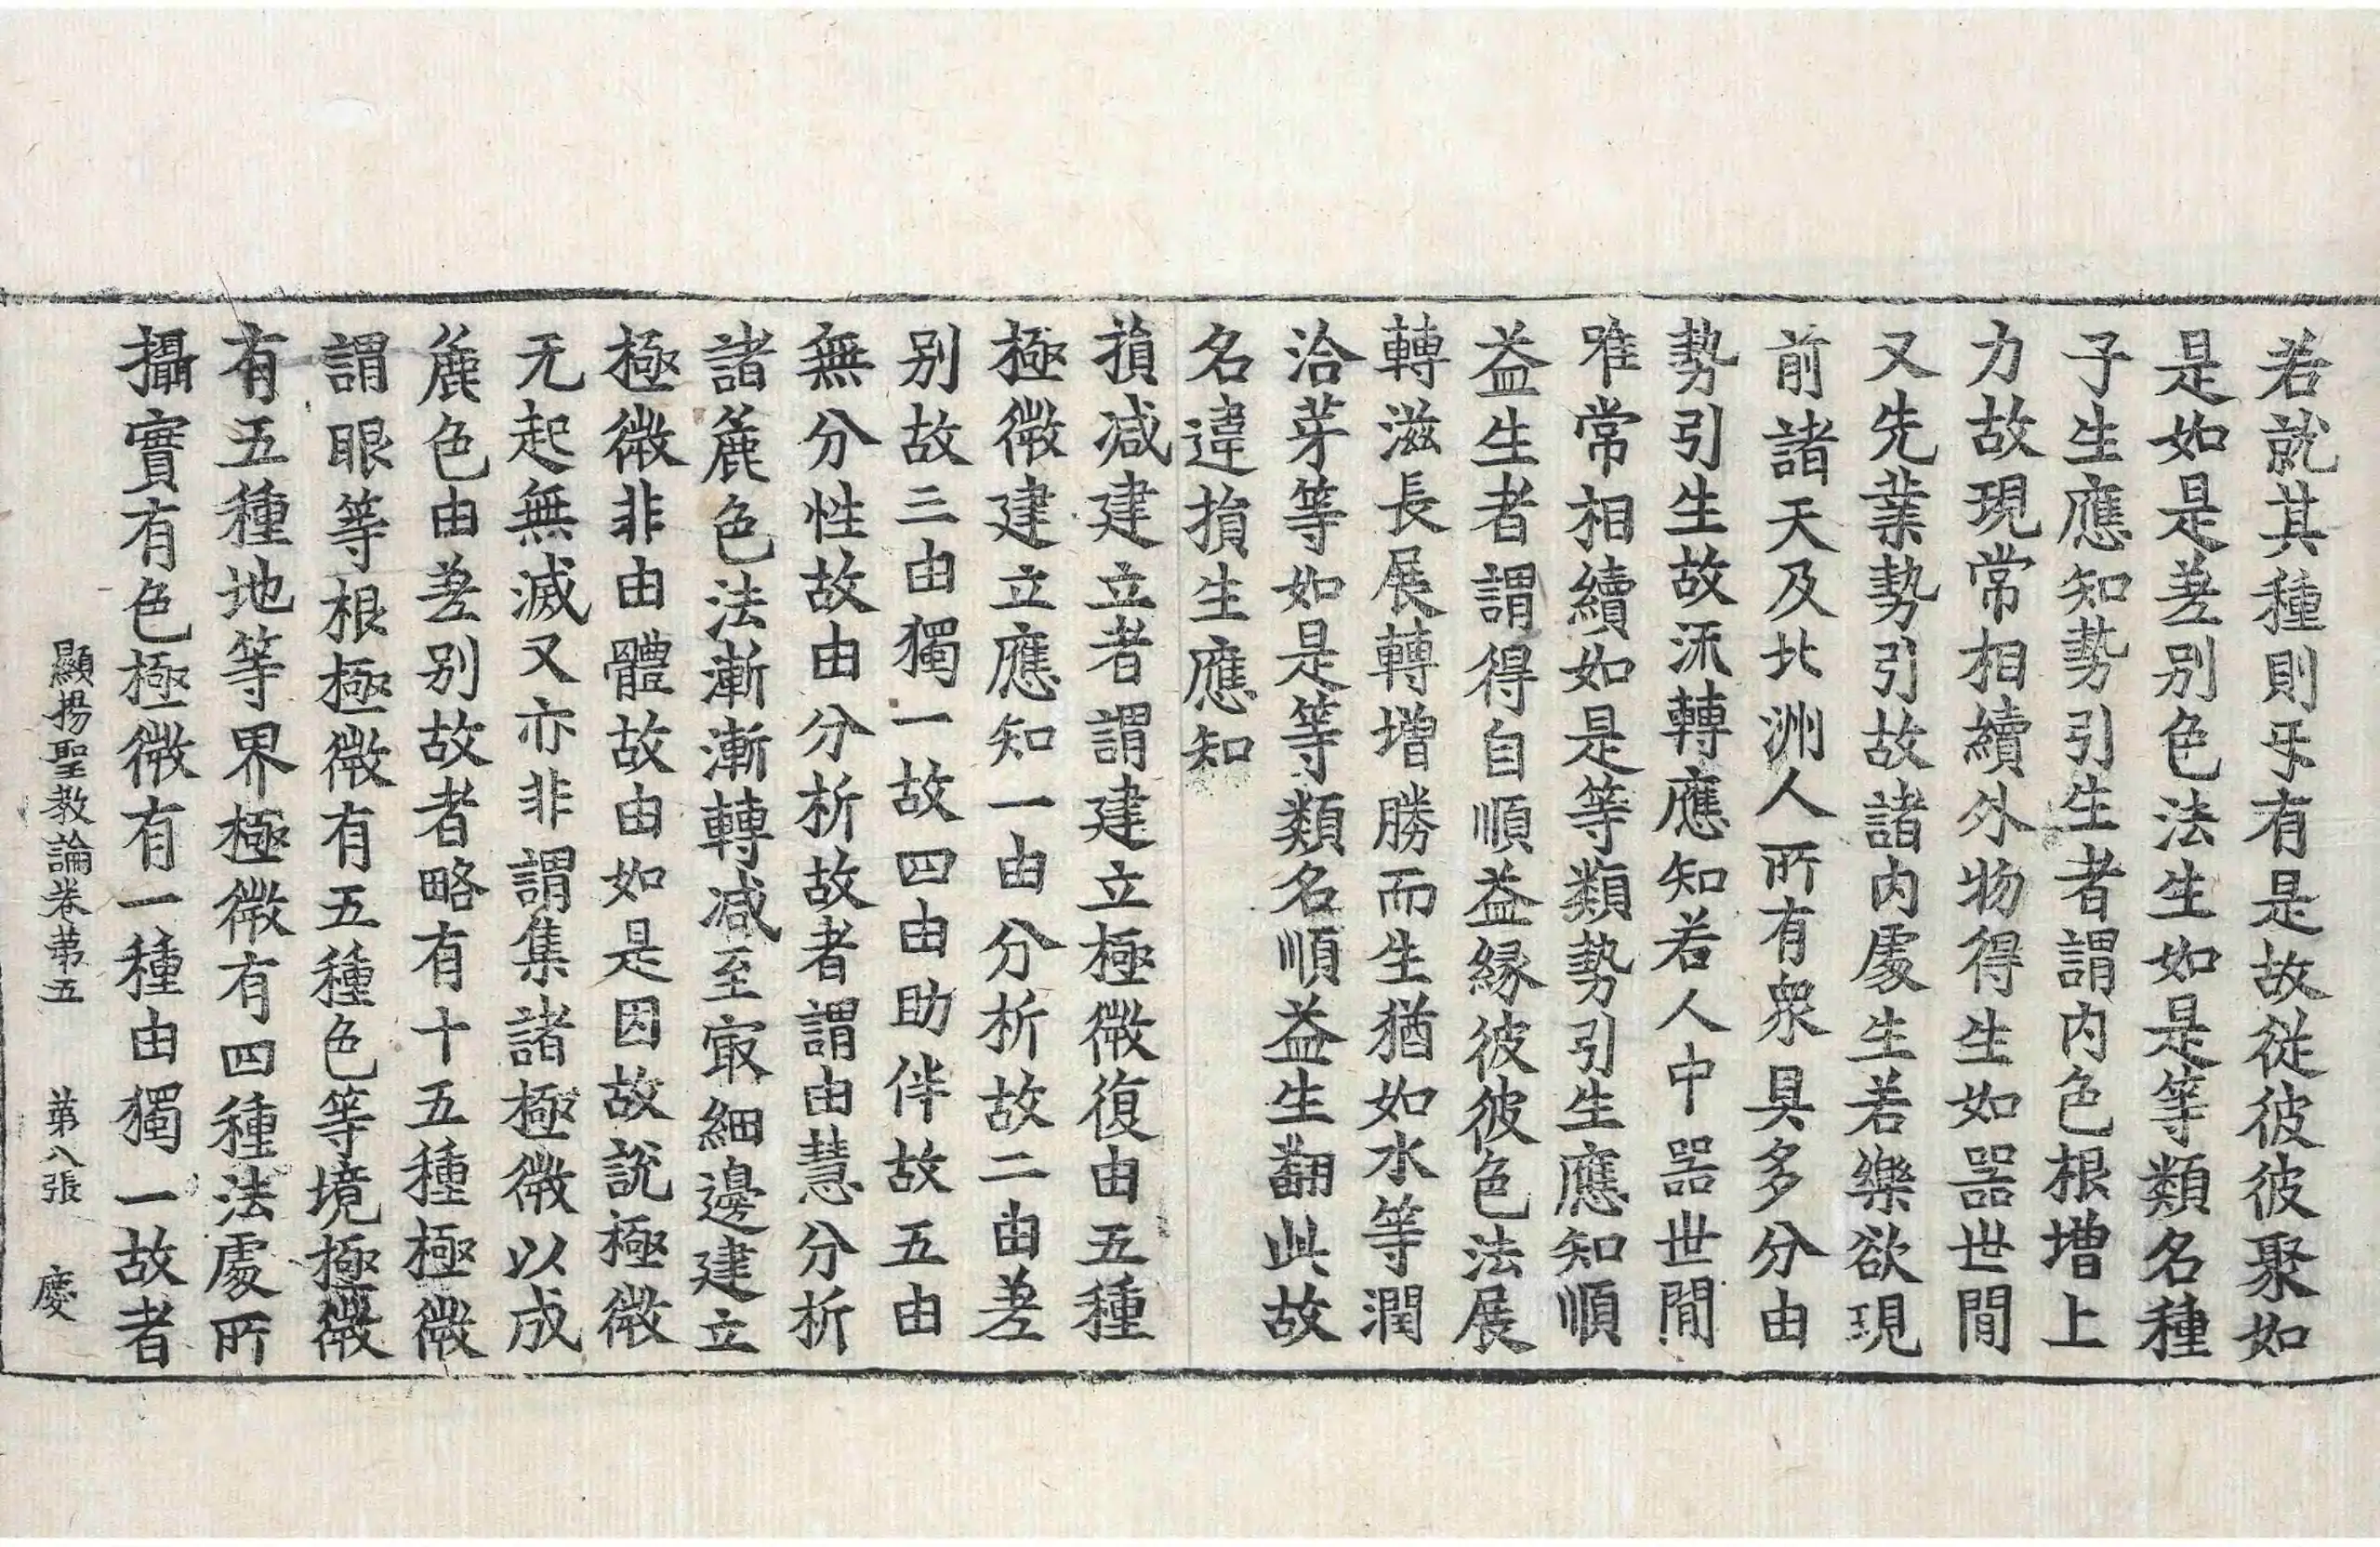 若就其種則乎有是故從彼彼聚如
是如是差別色法生如是等類名種
子生應知勢引生者謂内色根增上
力故現常相續外物得生如器世間
又先業勢引故諸内處生若樂欲現
前諸天及北洲人所有衆具多分由
勢引生故流轉應知若人中器世間
唯常相續如是等類勢引生應知順
益生者謂得自順益緣彼彼色法展
轉滋長展轉增勝而生猶如水等潤
洽芽等如是等類名順益生翻此故
名違損生應知
損減建立者謂建立極微復由五種
極微建立應知一由分析故二由差
别故三由獨一故四由助伴故五由
無分性故由分析故者謂由慧分析
諸麁色法漸漸轉減至㝡細邊建立
極微非由體故由如是因故說極微
无起無滅又亦非謂集諸極微以成
麁色由差别故者略有十五種極微
謂眼等根極微有五種色等境極微
有五種地等界極微有四種法處所
攝實有色極微有一種由獨一故者
顯揚聖教論卷第五 第八張 慶